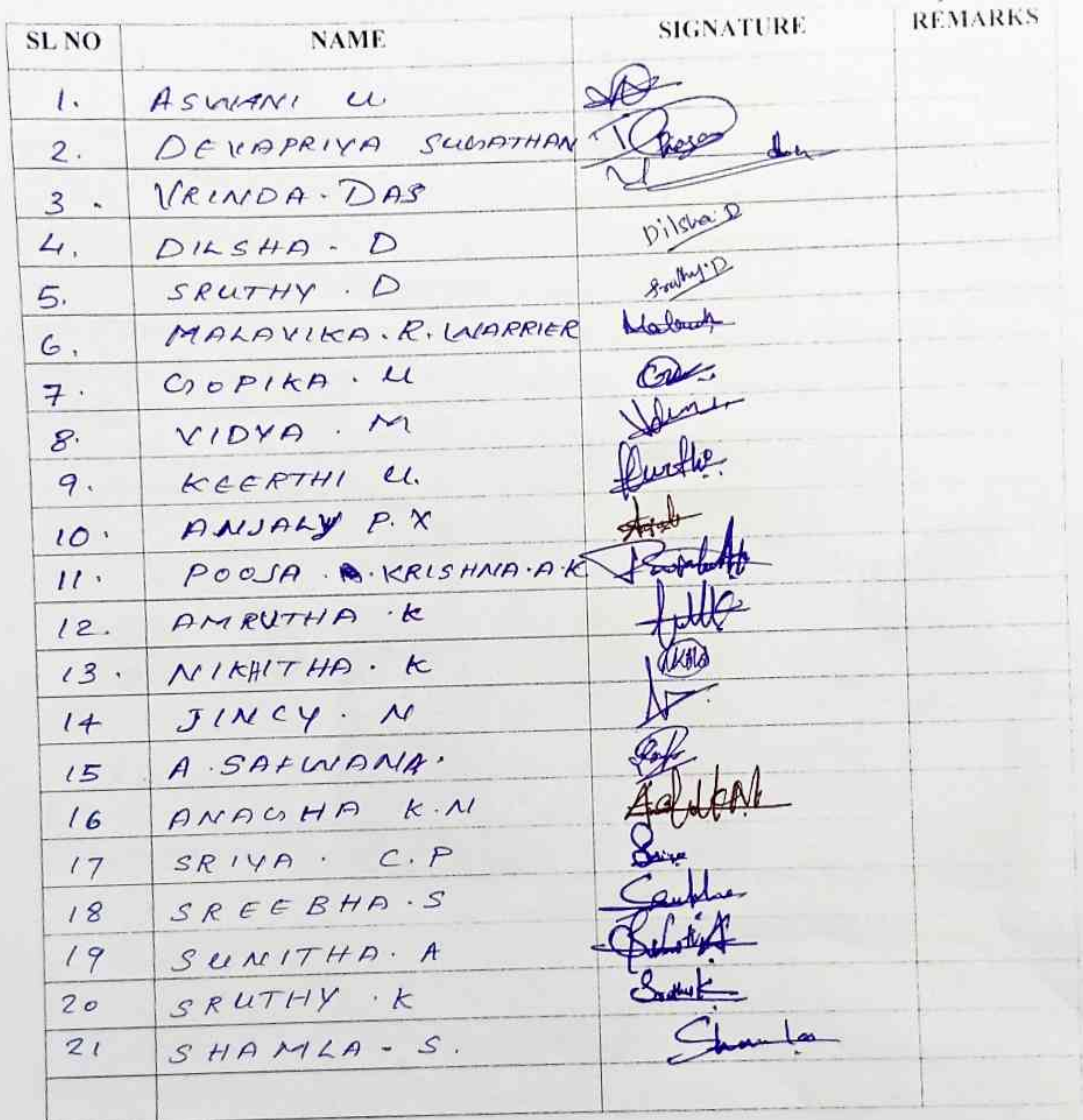 SL NO NAME SIGNATURE REMARKS
1. ASWANI U
2. DEVAPRIYA SUGATHAN
3. VRINDA. DAS
4. DILSHA. D Dilsha.D
5. SRUTHY. D Sruthy.D
6. MALAVIKA. R. WARRIER
7. GOPIKA. U
8. VIDYA. M
9. KEERTHI U.
10. ANJALY P. X
11. POOJA. KRISHNA. A. K
12. AMRUTHA. K
13. NIKHITHA. K
14 JINCY. N
15 A. SAFWANA.
16 ANAGHA K.N
17 SRIYA. C. P
18 SREEBHA. S
19 SUNITHA. A
20 SRUTHY. K
21 SHAMLA - S.